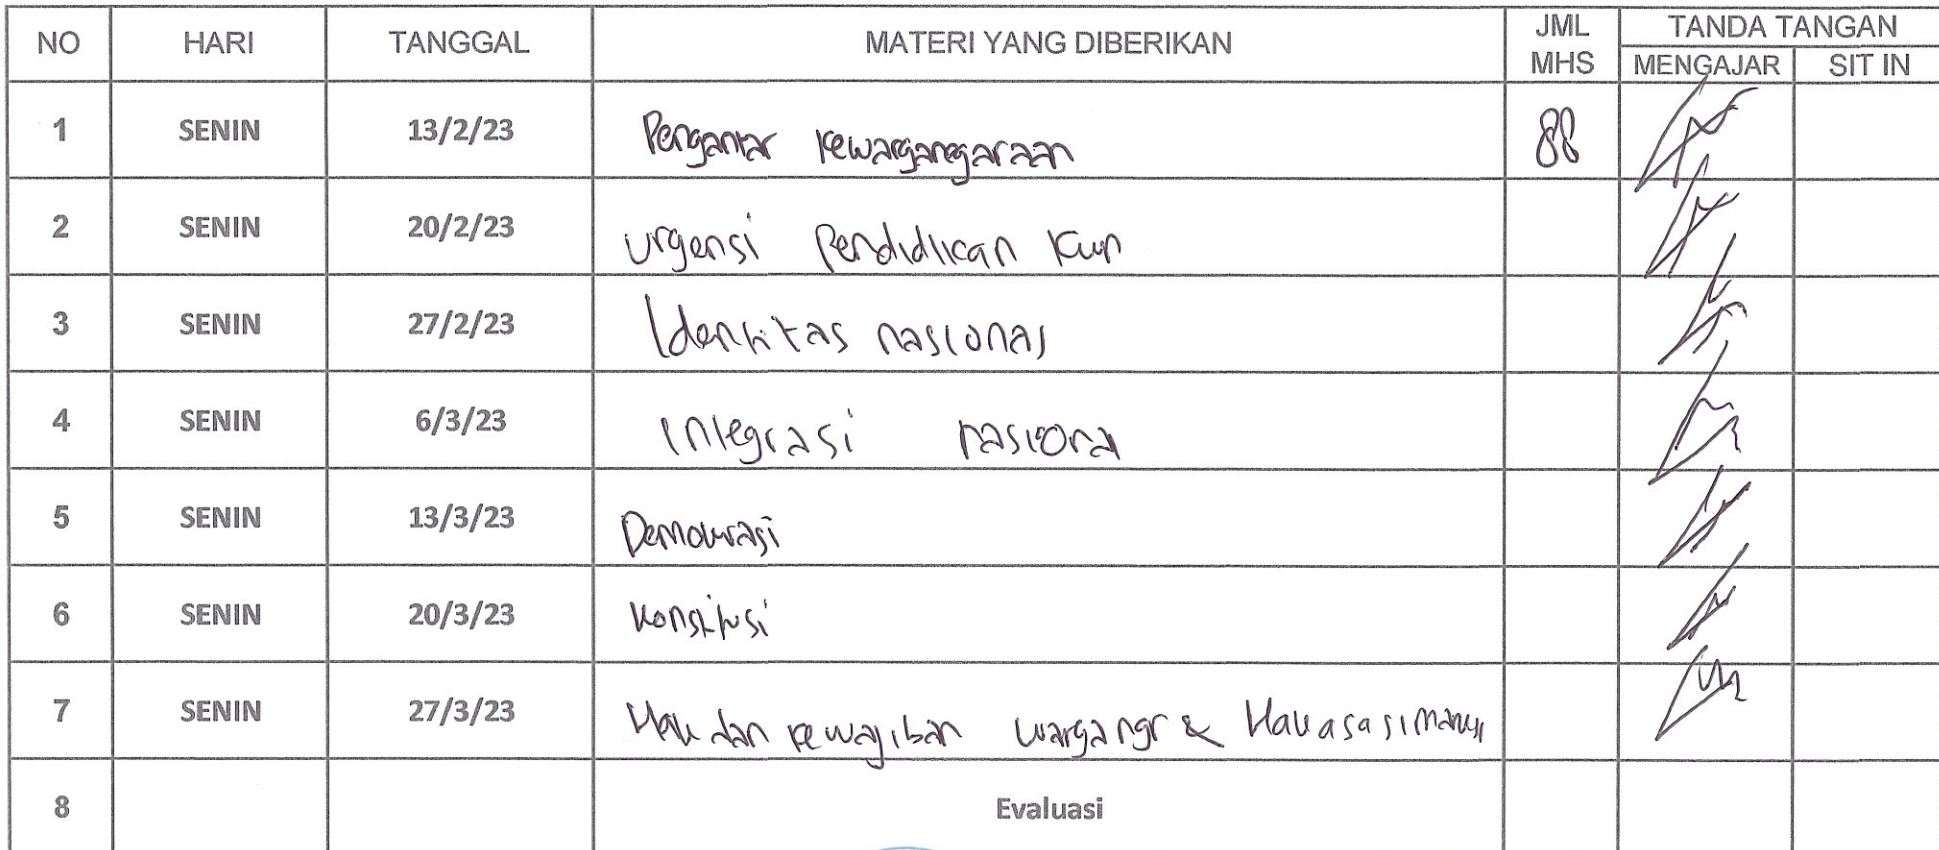 NO HARI TANGGAL MATERI YANG DIBERIKAN JML MHS TANDA TANGAN
MENGAJAR SIT IN
1 SENIN 13/2/23 Pengantar kewarganegaraan 88
2 SENIN 20/2/23 urgensi Pendidikan Kwn
3 SENIN 27/2/23 Identitas nasional
4 SENIN 6/3/23 integrasi nasiona
5 SENIN 13/3/23 Demokrasi
6 SENIN 20/3/23 Konstitusi
7 SENIN 27/3/23 Hak dan kewajiban wargangr & Hak asasi
8 Evaluasi